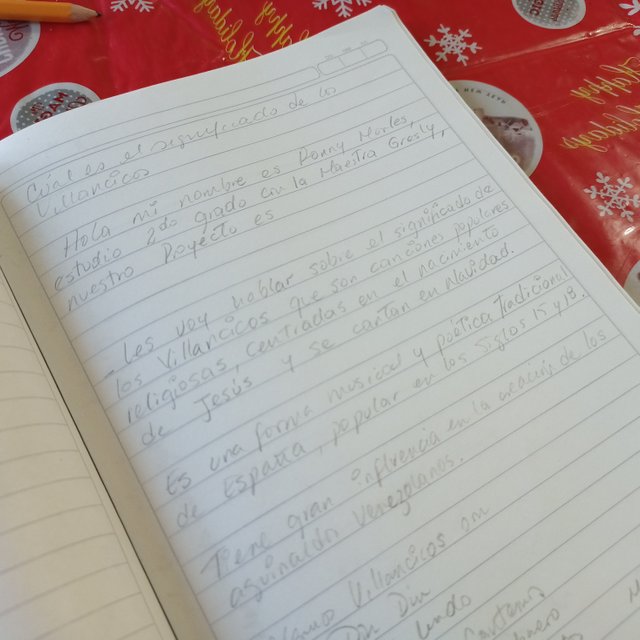 Cuál es el significado de lo
Villancicos
Hola mi nombre es Ronny Morles,
estudio 2do grado con la Maestra Gresly,
nuestro Proyecto es
Les voy hablar sobre el significado de
los Villancicos que son canciones populares
religiosas, centradas en el nacimiento
de Jesús y se cantan en Navidad.
Es una forma musical y poética Tradicional
de España, popular en los Siglos 15 y 18.
Tiene gran influencia en la creación de los
aguinaldos Venezolanos.
Villancicos
Din Din
lindo